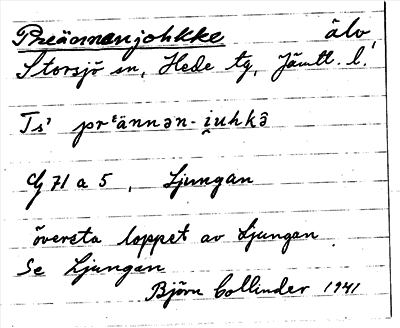 Preännanjohkke älv
Storsjö sn, Hede tg, Jämtl. l.
Ts' prᵋännən-i̯uhkə̑
Cg 71 a 5, Ljungan
översta loppet av Ljungan
Se Ljungan
Björn Collinder 1941